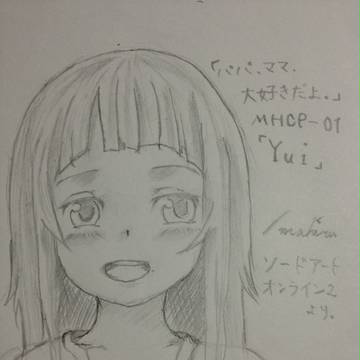 「パパ、ママ、
大好きだよ。」
MHCP-01
「Yui」
ソードアート
オンライン2
より。